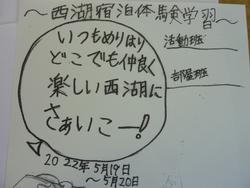 ～西湖宿泊体験学習～
いつもめりはり
どこでも仲良く
楽しい西湖に
さぁいこー!
活動班
部屋班
2022年5月19日
～5月20日